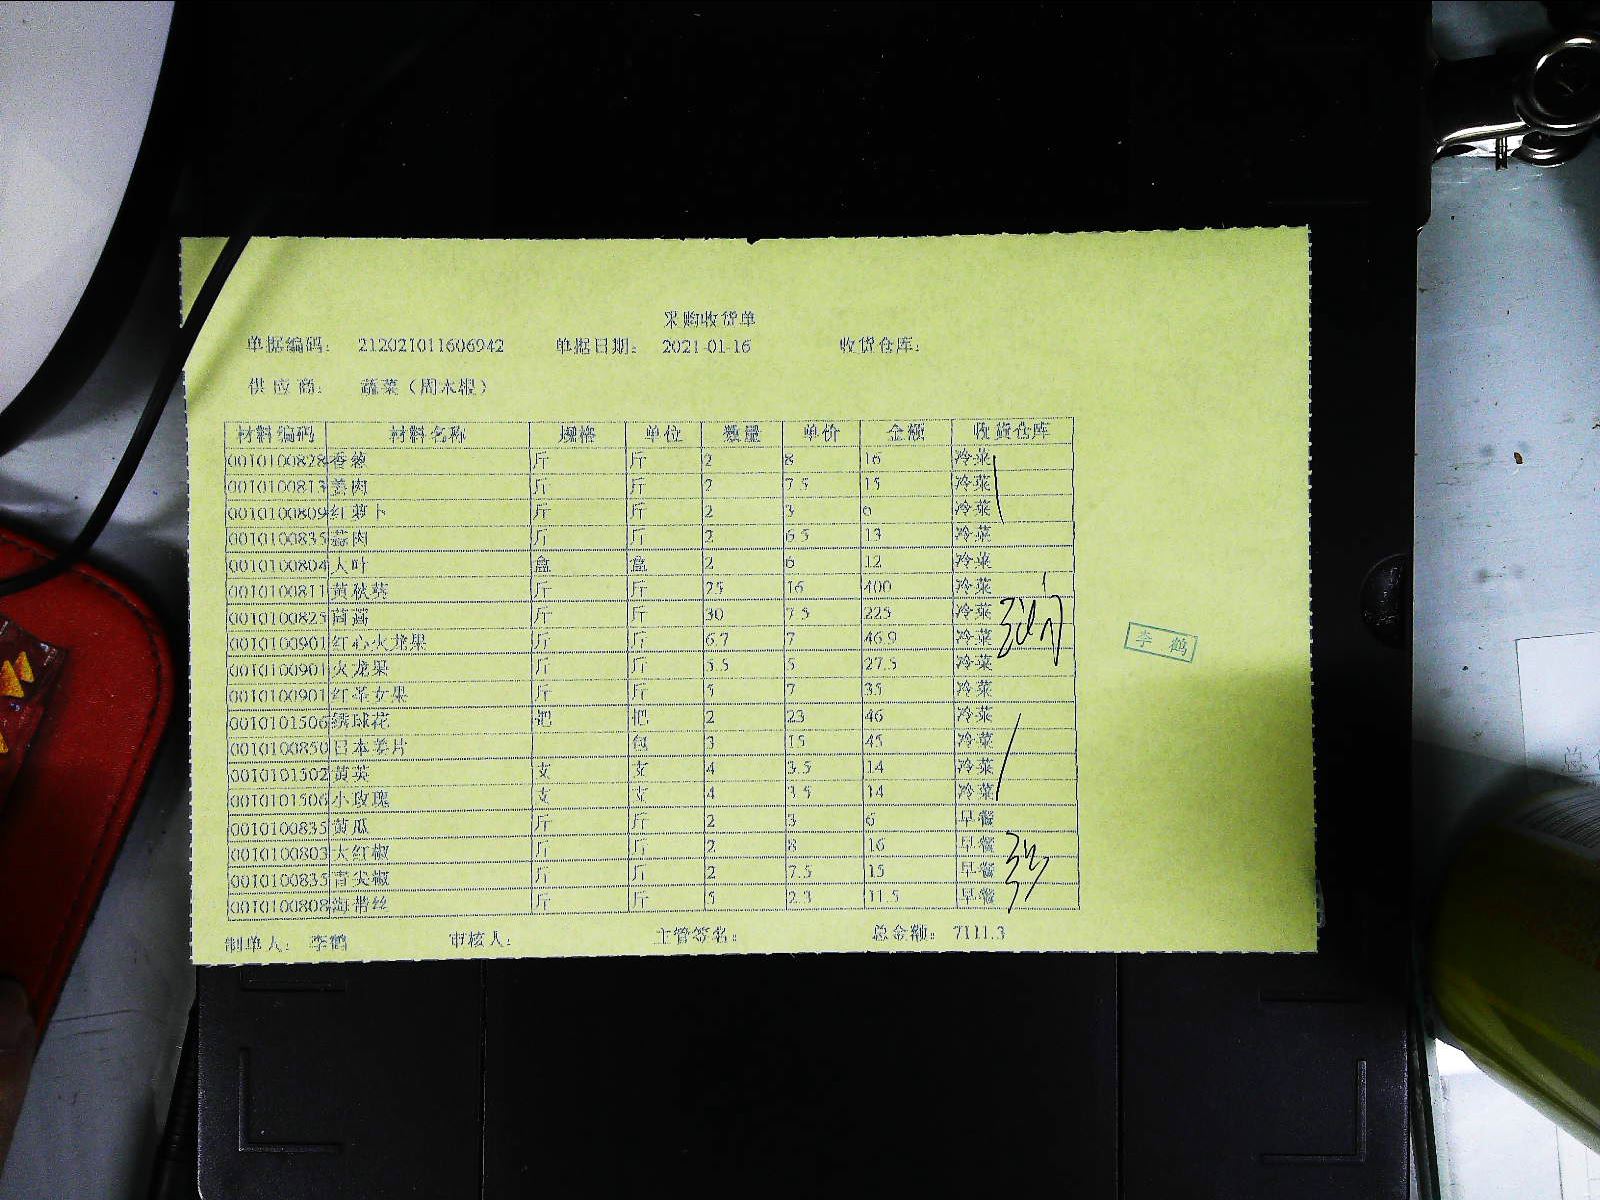 采购收货单
单据编码： 212021011606942 单据日期： 2021-01-16 收货仓库：
供应商： 蔬菜（周木根）
材料编码 材料名称 规格 单位 数量 单价 金额 收货仓库
0010100828 香葱 斤 斤 2 8 16 冷菜
0010100813 姜肉 斤 斤 2 7.5 15 冷菜
0010100809 红萝卜 斤 斤 2 3 6 冷菜
0010100835 蒜肉 斤 斤 2 6.5 13 冷菜
0010100804 大叶 盒 盒 2 6 12 冷菜
0010100811 黄秋葵 斤 斤 25 16 400 冷菜
0010100825 茼蒿 斤 斤 30 7.5 225 冷菜
0010100901 红心火龙果 斤 斤 6.7 7 46.9 冷菜
0010100901 火龙果 斤 斤 5.5 5 27.5 冷菜
0010100901 红圣女果 斤 斤 5 7 35 冷菜
0010101506 绣球花 把 把 2 23 46 冷菜
0010100850 日本姜片 包 3 15 45 冷菜
0010101502 黄英 支 支 4 3.5 14 冷菜
0010101506 小玫瑰 支 支 4 3.5 14 冷菜
0010100835 黄瓜 斤 斤 2 3 6 早餐
0010100803 大红椒 斤 斤 2 8 16 早餐
0010100835 青尖椒 斤 斤 2 7.5 15 早餐
0010100808 海带丝 斤 斤 5 2.3 11.5 早餐
制单人： 李鹤 审核人： 主管签名： 总金额： 7111.3
李鹤